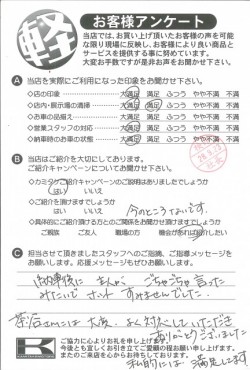 軽
お客様アンケート
当店では、お買い上げ頂いたお客様の声を可能
な限り現場に反映し、お客様により良い商品と
サービスを提供する事に努めています。
大変お手数ですが是非お声をお聞かせ下さい。
A 当店を実際にご利用になった印象をお聞かせ下さい。
◇店の印象 大満足 満足 ふつう やや不満 不満
◇店内・展示場の清掃 大満足 満足 ふつう やや不満 不満
◇お車の品揃え 大満足 満足 ふつう やや不満 不満
◇営業スタッフの対応 大満足 満足 ふつう やや不満 不満
◇納車時のお車の状態 大満足 満足 ふつう やや不満 不満
B 当店はご紹介を大切にしております。
ご紹介キャンペーンについてお聞かせ下さい。
◇カミタケご紹介キャンペーンのご説明はありましたでしょうか
はい いいえ
◇ご紹介を頂けますでしょうか
はい いいえ 今のところないです。
◇具体的にご紹介頂ける方とのご関係をお聞かせ頂けますでしょうか
ご親族 ご友人 職場の方 機会があれば紹介したい
C 担当させて頂きましたスタッフへのご指摘、ご指導メッセージを
お願いします。応援メッセージもぜひお願いします。
ごちゃごちゃ言った
みたいで すみませんでした。
には 大変 よく対応していただき
ありがとうございました
私的には 満足してます
K
ご協力に心よりお礼を申し上げます。
今後とも宜しくお引き立てご愛顧の程お願い申し上げます。
またのご来店を心からお待ちしております。